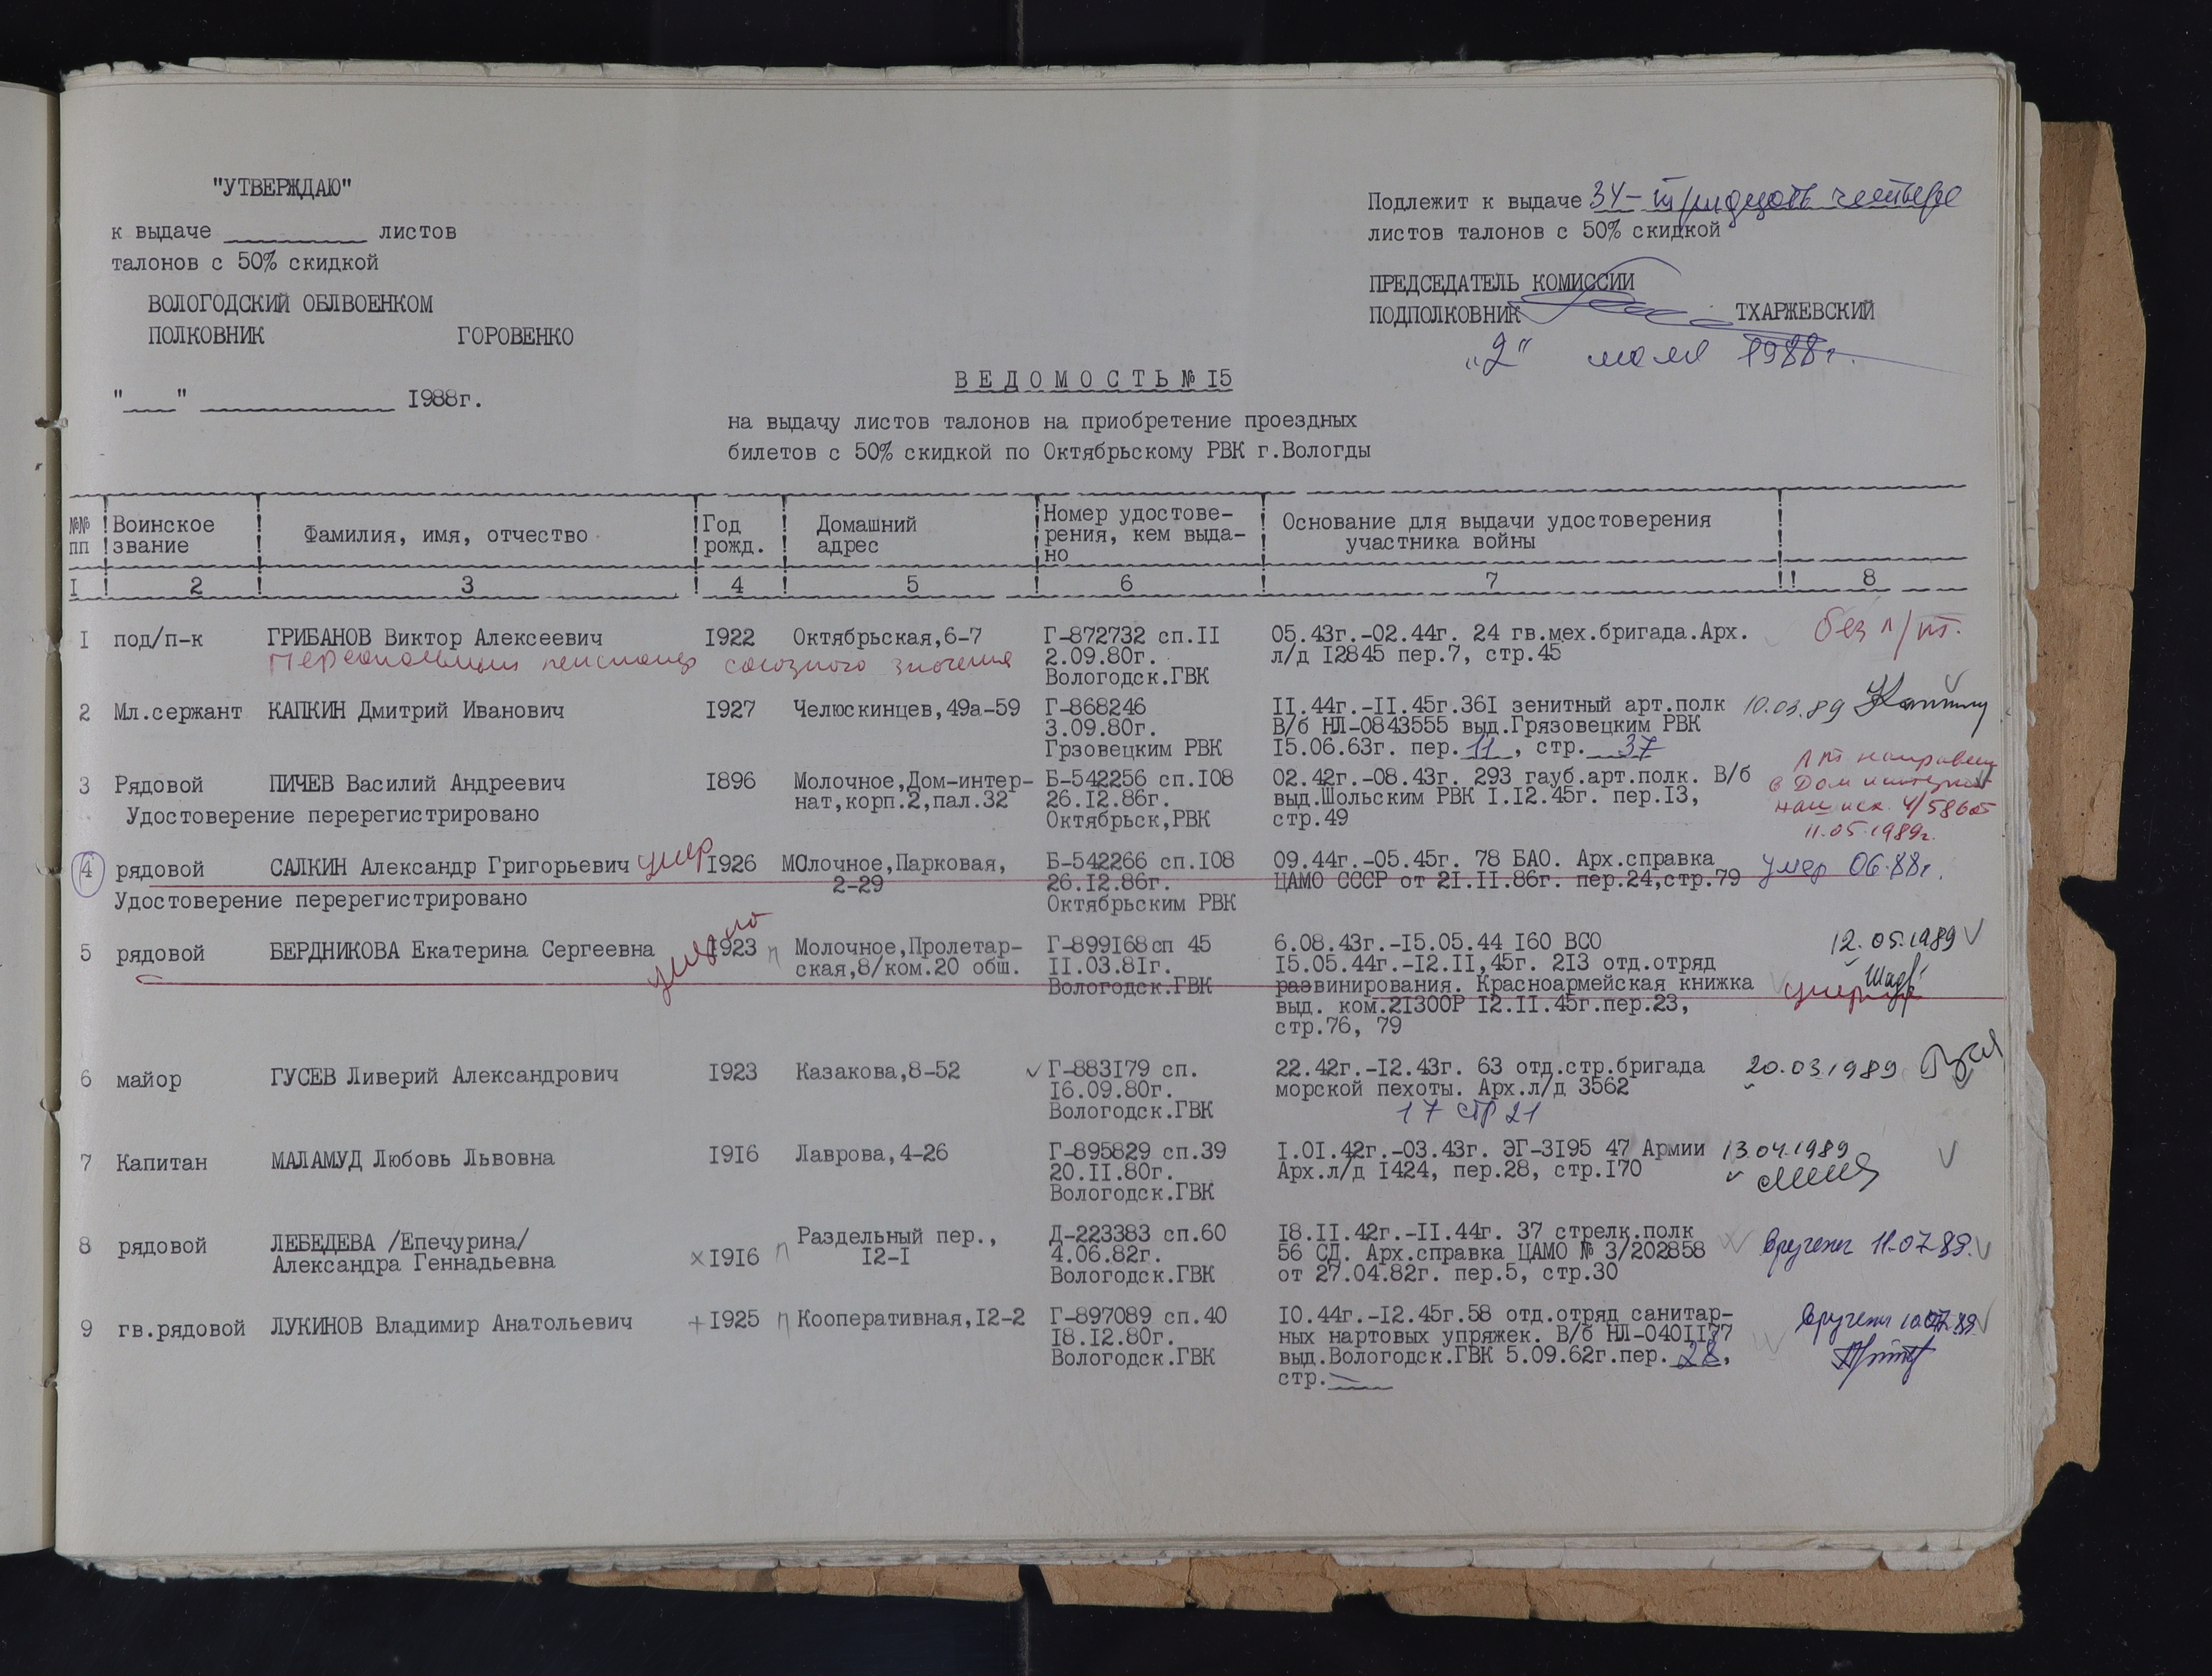 "УТВЕРЖДАЮ"
к выдаче ___________ листов
талонов с 50% скидкой
ВОЛОГОДСКИЙ ОБЛВОЕНКОМ
ПОЛКОВНИК ГОРОВЕНКО
"___" ______________ 1988г.
Подлежит к выдаче 34- тридцать четыре
листов талонов с 50% скидкой
ПРЕДСЕДАТЕЛЬ КОМИССИИ
ПОДПОЛКОВНИК ТХАРЖЕВСКИЙ
"2" мая 1988г.
ВЕДОМОСТЬ № I5
на выдачу листов талонов на приобретение проездных
билетов с 50% скидкой по Октябрьскому РВК г.Вологды
№№ пп ! Воинское звание ! Фамилия, имя, отчество ! Год рожд. ! Домашний адрес ! Номер удостове-рения, кем выда-но ! Основание для выдачи удостоверения участника войны !
I ! 2 ! 3 ! 4 ! 5 ! 6 ! 7 !! 8
I под/п-к ГРИБАНОВ Виктор Алексеевич I922 Октябрьская,6-7 Г-872732 сп.II 05.43г.-02.44г. 24 гв.мех.бригада.Арх. без л/т.
Персональный пенсионер союзного значения 2.09.80г. л/д I2845 пер.7, стр.45
Вологодск.ГВК
2 Мл.сержант КАПКИН Дмитрий Иванович I927 Челюскинцев,49а-59 Г-868246 II.44г.-II.45г.36I зенитный арт.полк 10.03.89
3.09.80г. В/б НЛ-0843555 выд.Грязовецким РВК
Грзовецким РВК I5.06.63г. пер. 11 , стр. 37
3 Рядовой ПИЧЕВ Василий Андреевич I896 Молочное,Дом-интер- Б-542256 сп.I08 02.42г.-08.43г. 293 гауб.арт.полк. В/б
нат,корп.2,пал.32 26.I2.86г. выд.Шольским РВК I.I2.45г. пер.I3,
Удостоверение перерегистрировано Октябрьск,РВК стр.49
ЛТ направлен
в Дом интернат
наш исх. 4/586 от
11.05.1989г.
4 рядовой САЛКИН Александр Григорьевич умер I926 МОлочное,Парковая, Б-542266 сп.I08 09.44г.-05.45г. 78 БАО. Арх.справка умер 06.88г.
2-29 26.I2.86г. ЦАМО СССР от 2I.II.86г. пер.24,стр.79
Удостоверение перерегистрировано Октябрьским РВК
5 рядовой БЕРДНИКОВА Екатерина Сергеевна умерла I923 п Молочное,Пролетар- Г-899I68 сп 45 6.08.43г.-I5.05.44 I60 ВСО 12.05.1989
ская,8/ком.20 общ. II.03.8Iг. I5.05.44г.-I2.II,45г. 2I3 отд.отряд
Вологодск.ГВК развинирования. Красноармейская книжка умерла
выд. ком.2I300Р I2.II.45г.пер.23,
стр.76, 79
6 майор ГУСЕВ Ливерий Александрович I923 Казакова,8-52 Г-883I79 сп. 22.42г.-I2.43г. 63 отд.стр.бригада 20.03.1989
I6.09.80г. морской пехоты. Арх.л/д 3562
Вологодск.ГВК 17 стр 21
7 Капитан МАЛАМУД Любовь Львовна I9I6 Лаврова,4-26 Г-895829 сп.39 I.0I.42г.-03.43г. ЭГ-3I95 47 Армии 13.04.1989
20.II.80г. Арх.л/д I424, пер.28, стр.I70
Вологодск.ГВК
8 рядовой ЛЕБЕДЕВА /Епечурина/ Раздельный пер., Д-223383 сп.60 I8.II.42г.-II.44г. 37 стрелк.полк
Александра Геннадьевна I9I6 п I2-I 4.06.82г. 56 СД. Арх.справка ЦАМО № 3/202858 Вручены 11.07.89.
Вологодск.ГВК от 27.04.82г. пер.5, стр.30
9 гв.рядовой ЛУКИНОВ Владимир Анатольевич I925 п Кооперативная,I2-2 Г-897089 сп.40 I0.44г.-I2.45г.58 отд.отряд санитар- Вручены 10.07.89
I8.I2.80г. ных нартовых упряжек. В/б НЛ-040II77
Вологодск.ГВК выд.Вологодск.ГВК 5.09.62г.пер. 28,
стр.